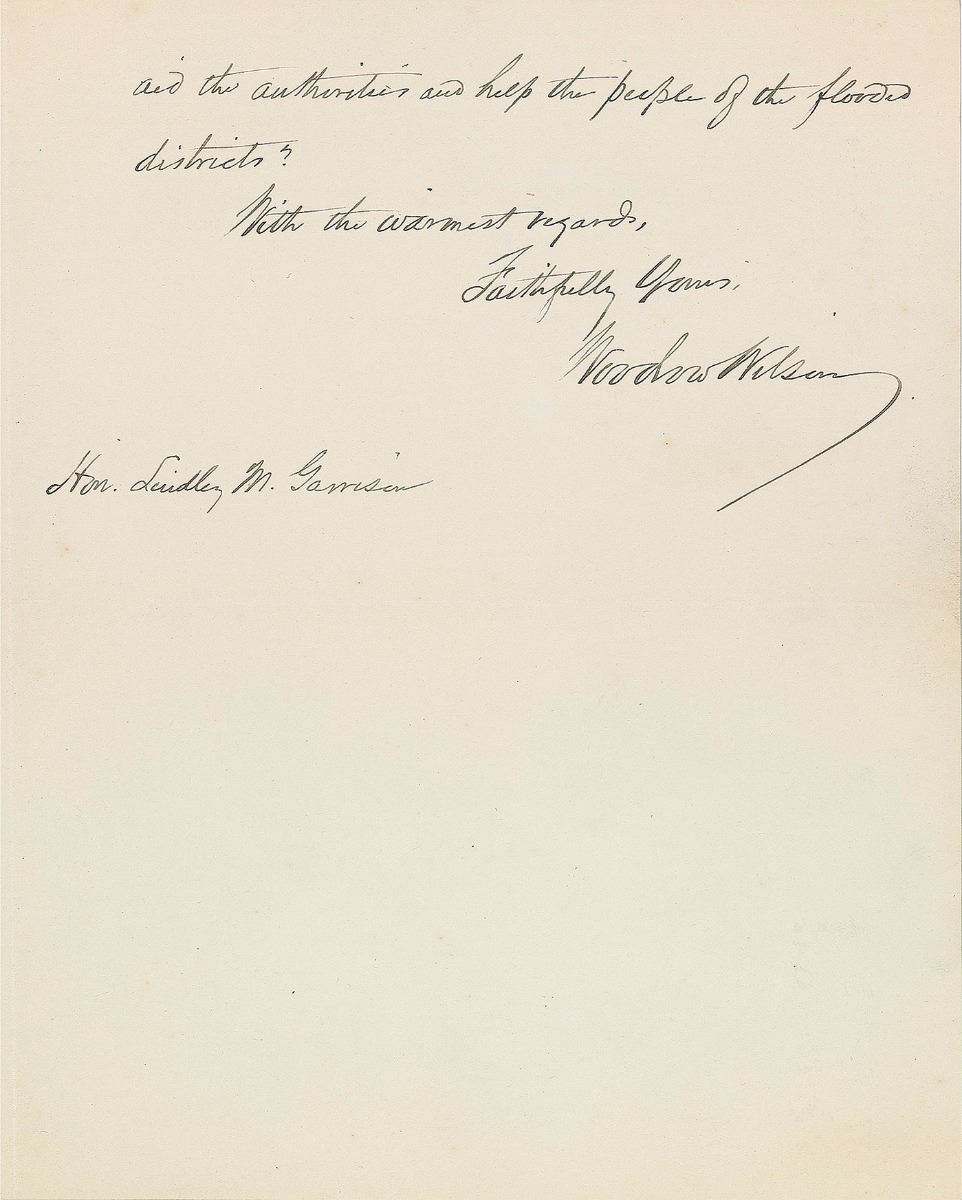 aid the authorities and help the people of the flooded
districts?
With the warmest regards,
Faithfully Yours,
Woodrow Wilson
Hon. Lindley M. Garrison